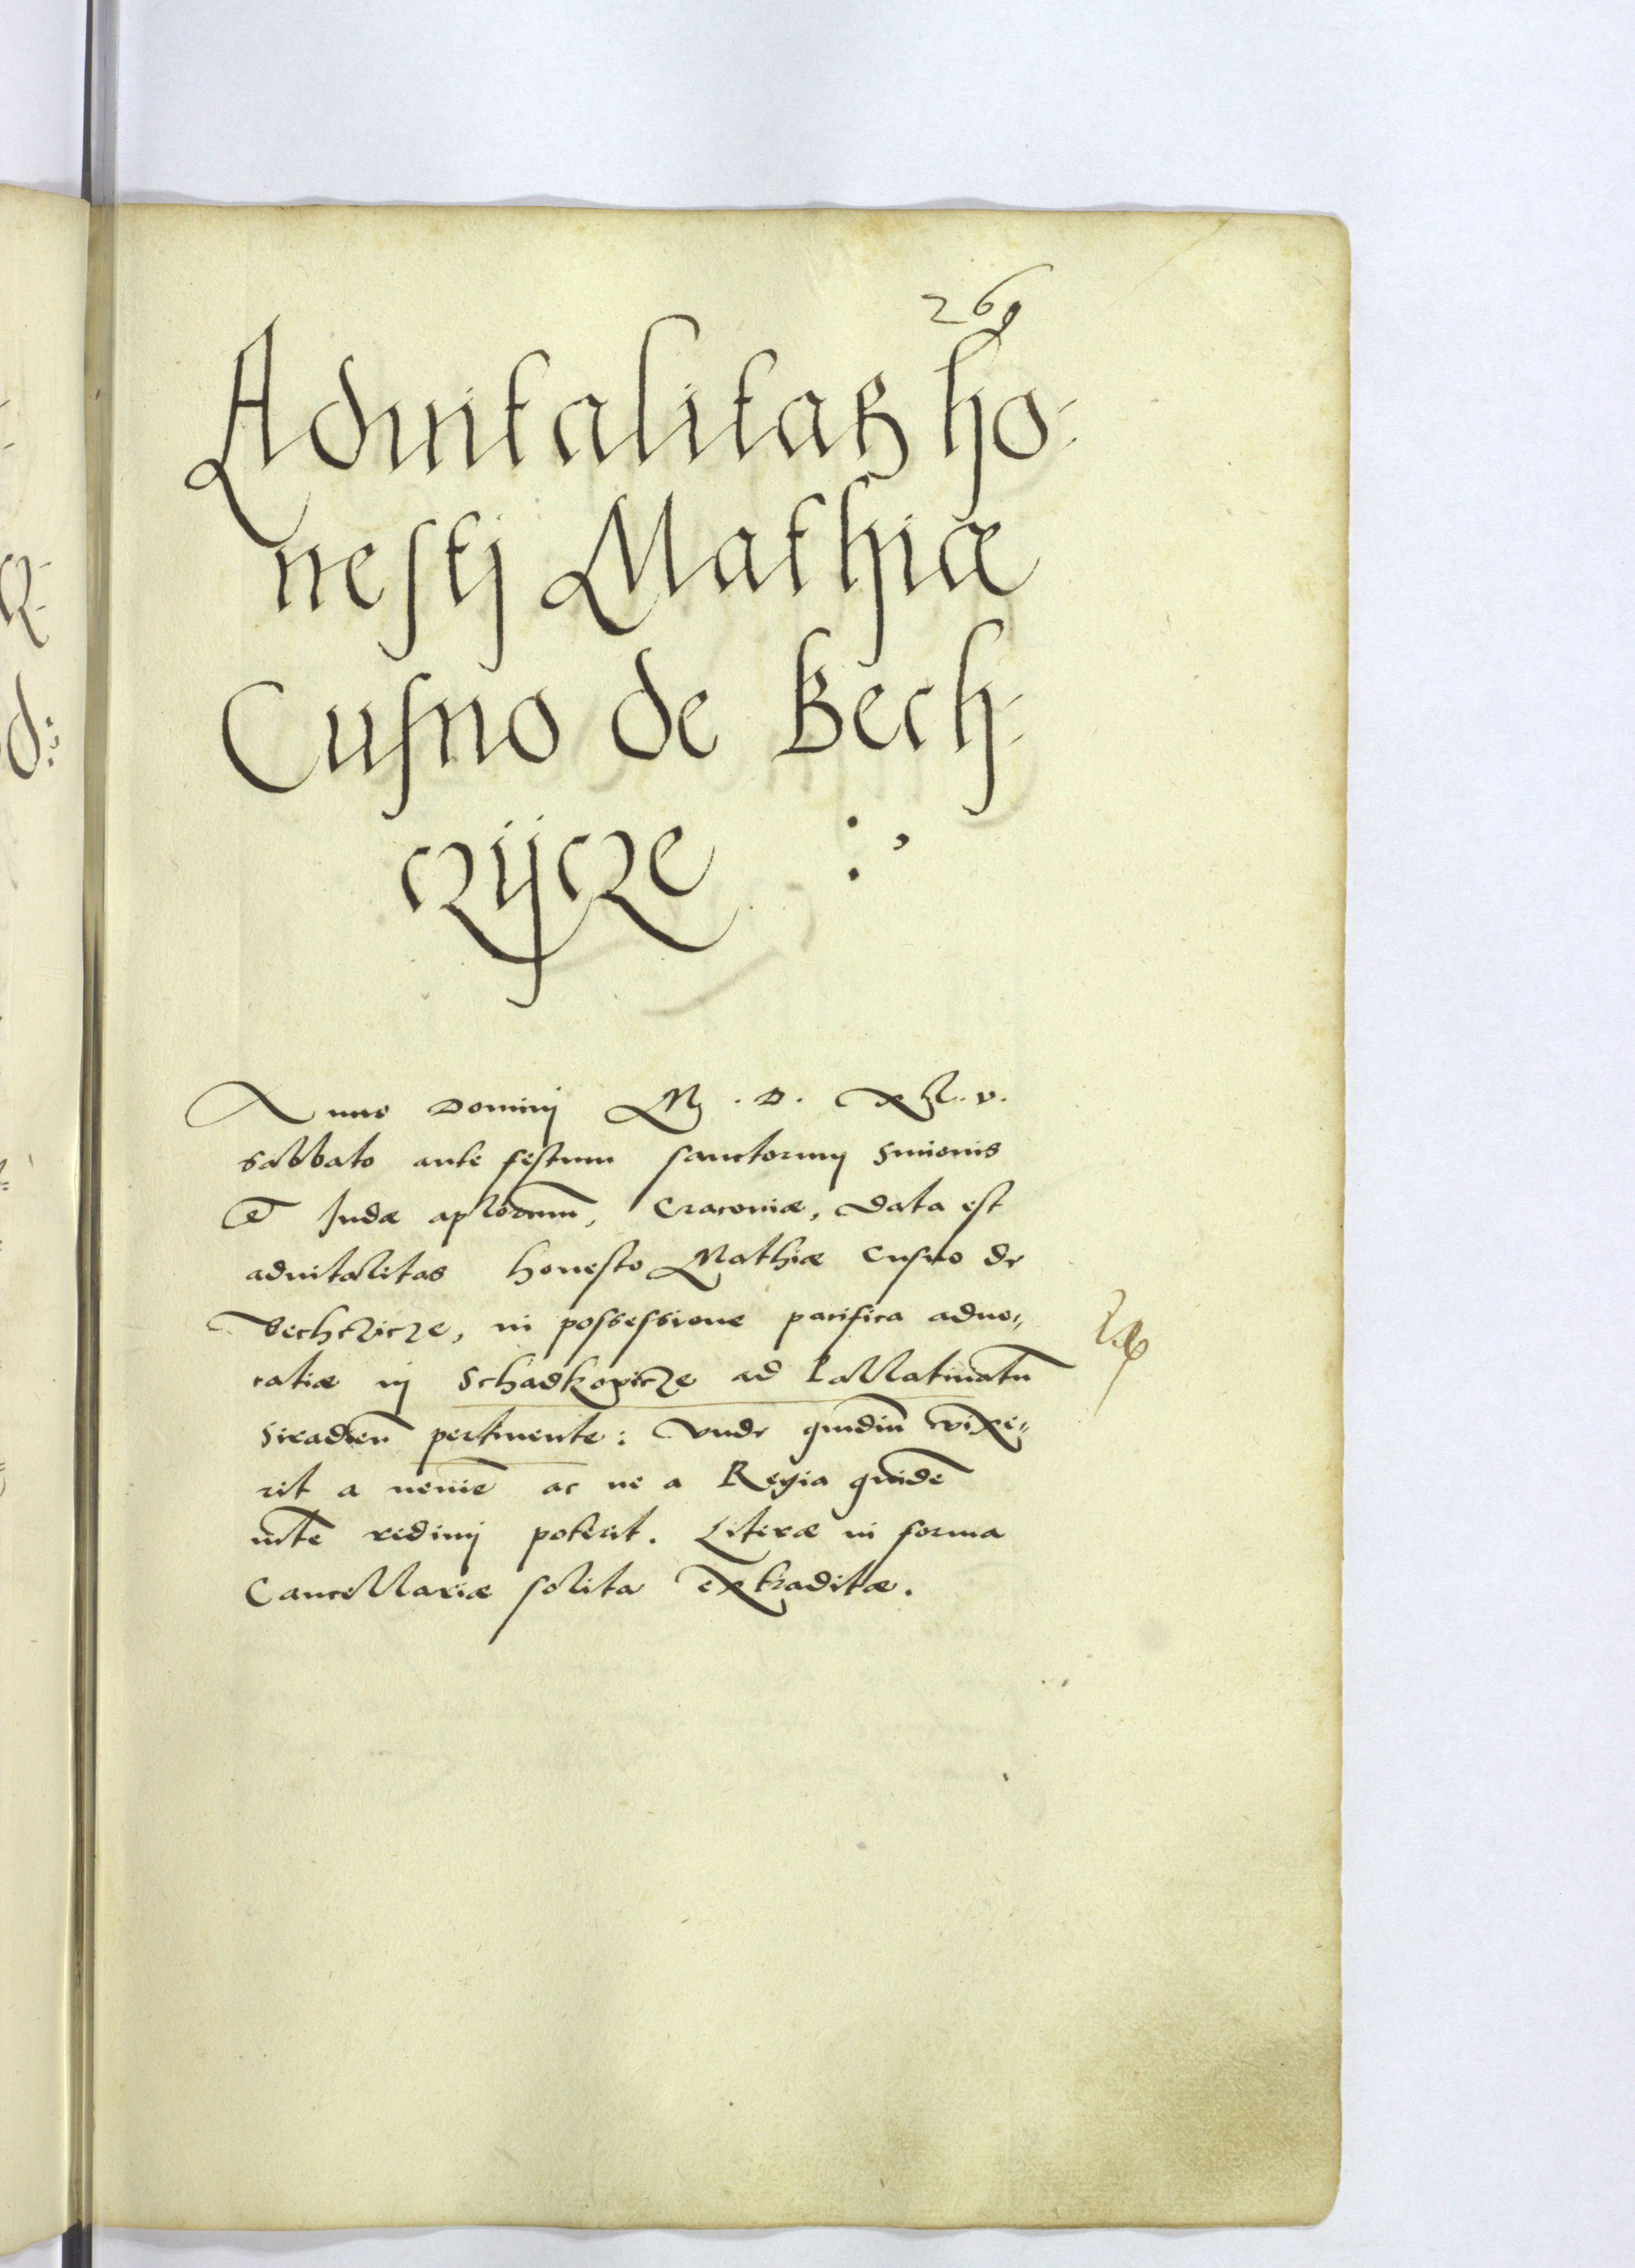 269
Aduitalitas ho-
nestj Mathiæ
Cusno de Bech-
czijcze :,
Anno Dominj M. D. XL. v.
sabbato ante festum sanctorum Simonis
et Judæ aplorum, Cracoviæ, data est
aduitalitas honesto Mathiæ Cusno de
Bechczicze, in possessione pacifica aduo„
catiæ in Schadkovicze ad Pallatinatū
Siradien̄ pertinente: Vnde quādiu vixe„
rit a nemīe ac ne a Regia quidē
mte redimj poterit. Literæ in forma
Cancellariæ solita extraditæ.